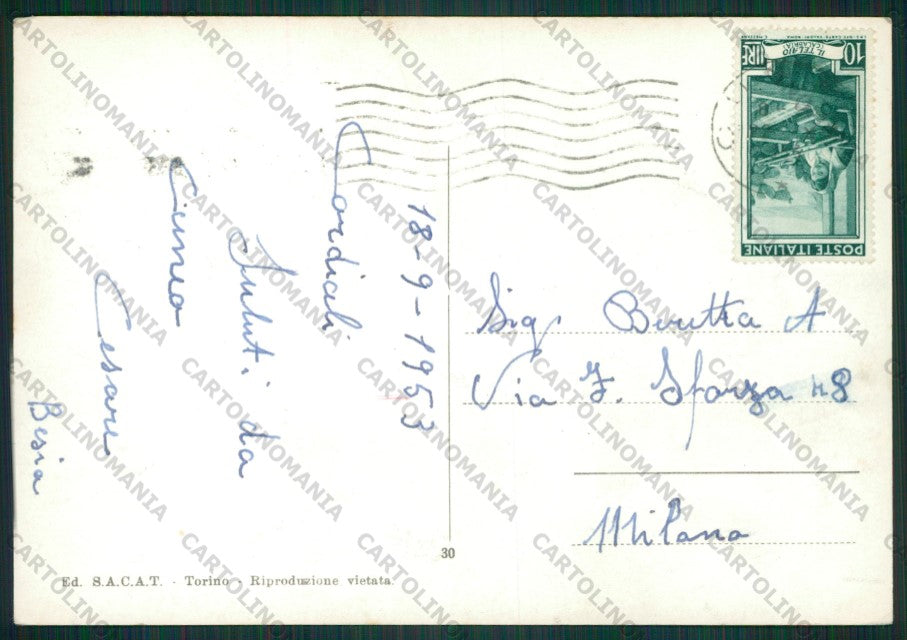 18-9-1953
Cordiali
Saluti da
Cuneo
Cesare
Besia
POSTE ITALIANE
IL TELAIO
CALABRIA
10 LIRE
Sig. Beretta A
Via F. Sforza n 8
Milano
30
Ed. S.A.C.A.T. - Torino - Riproduzione vietata.
CARTOLINOMANIA